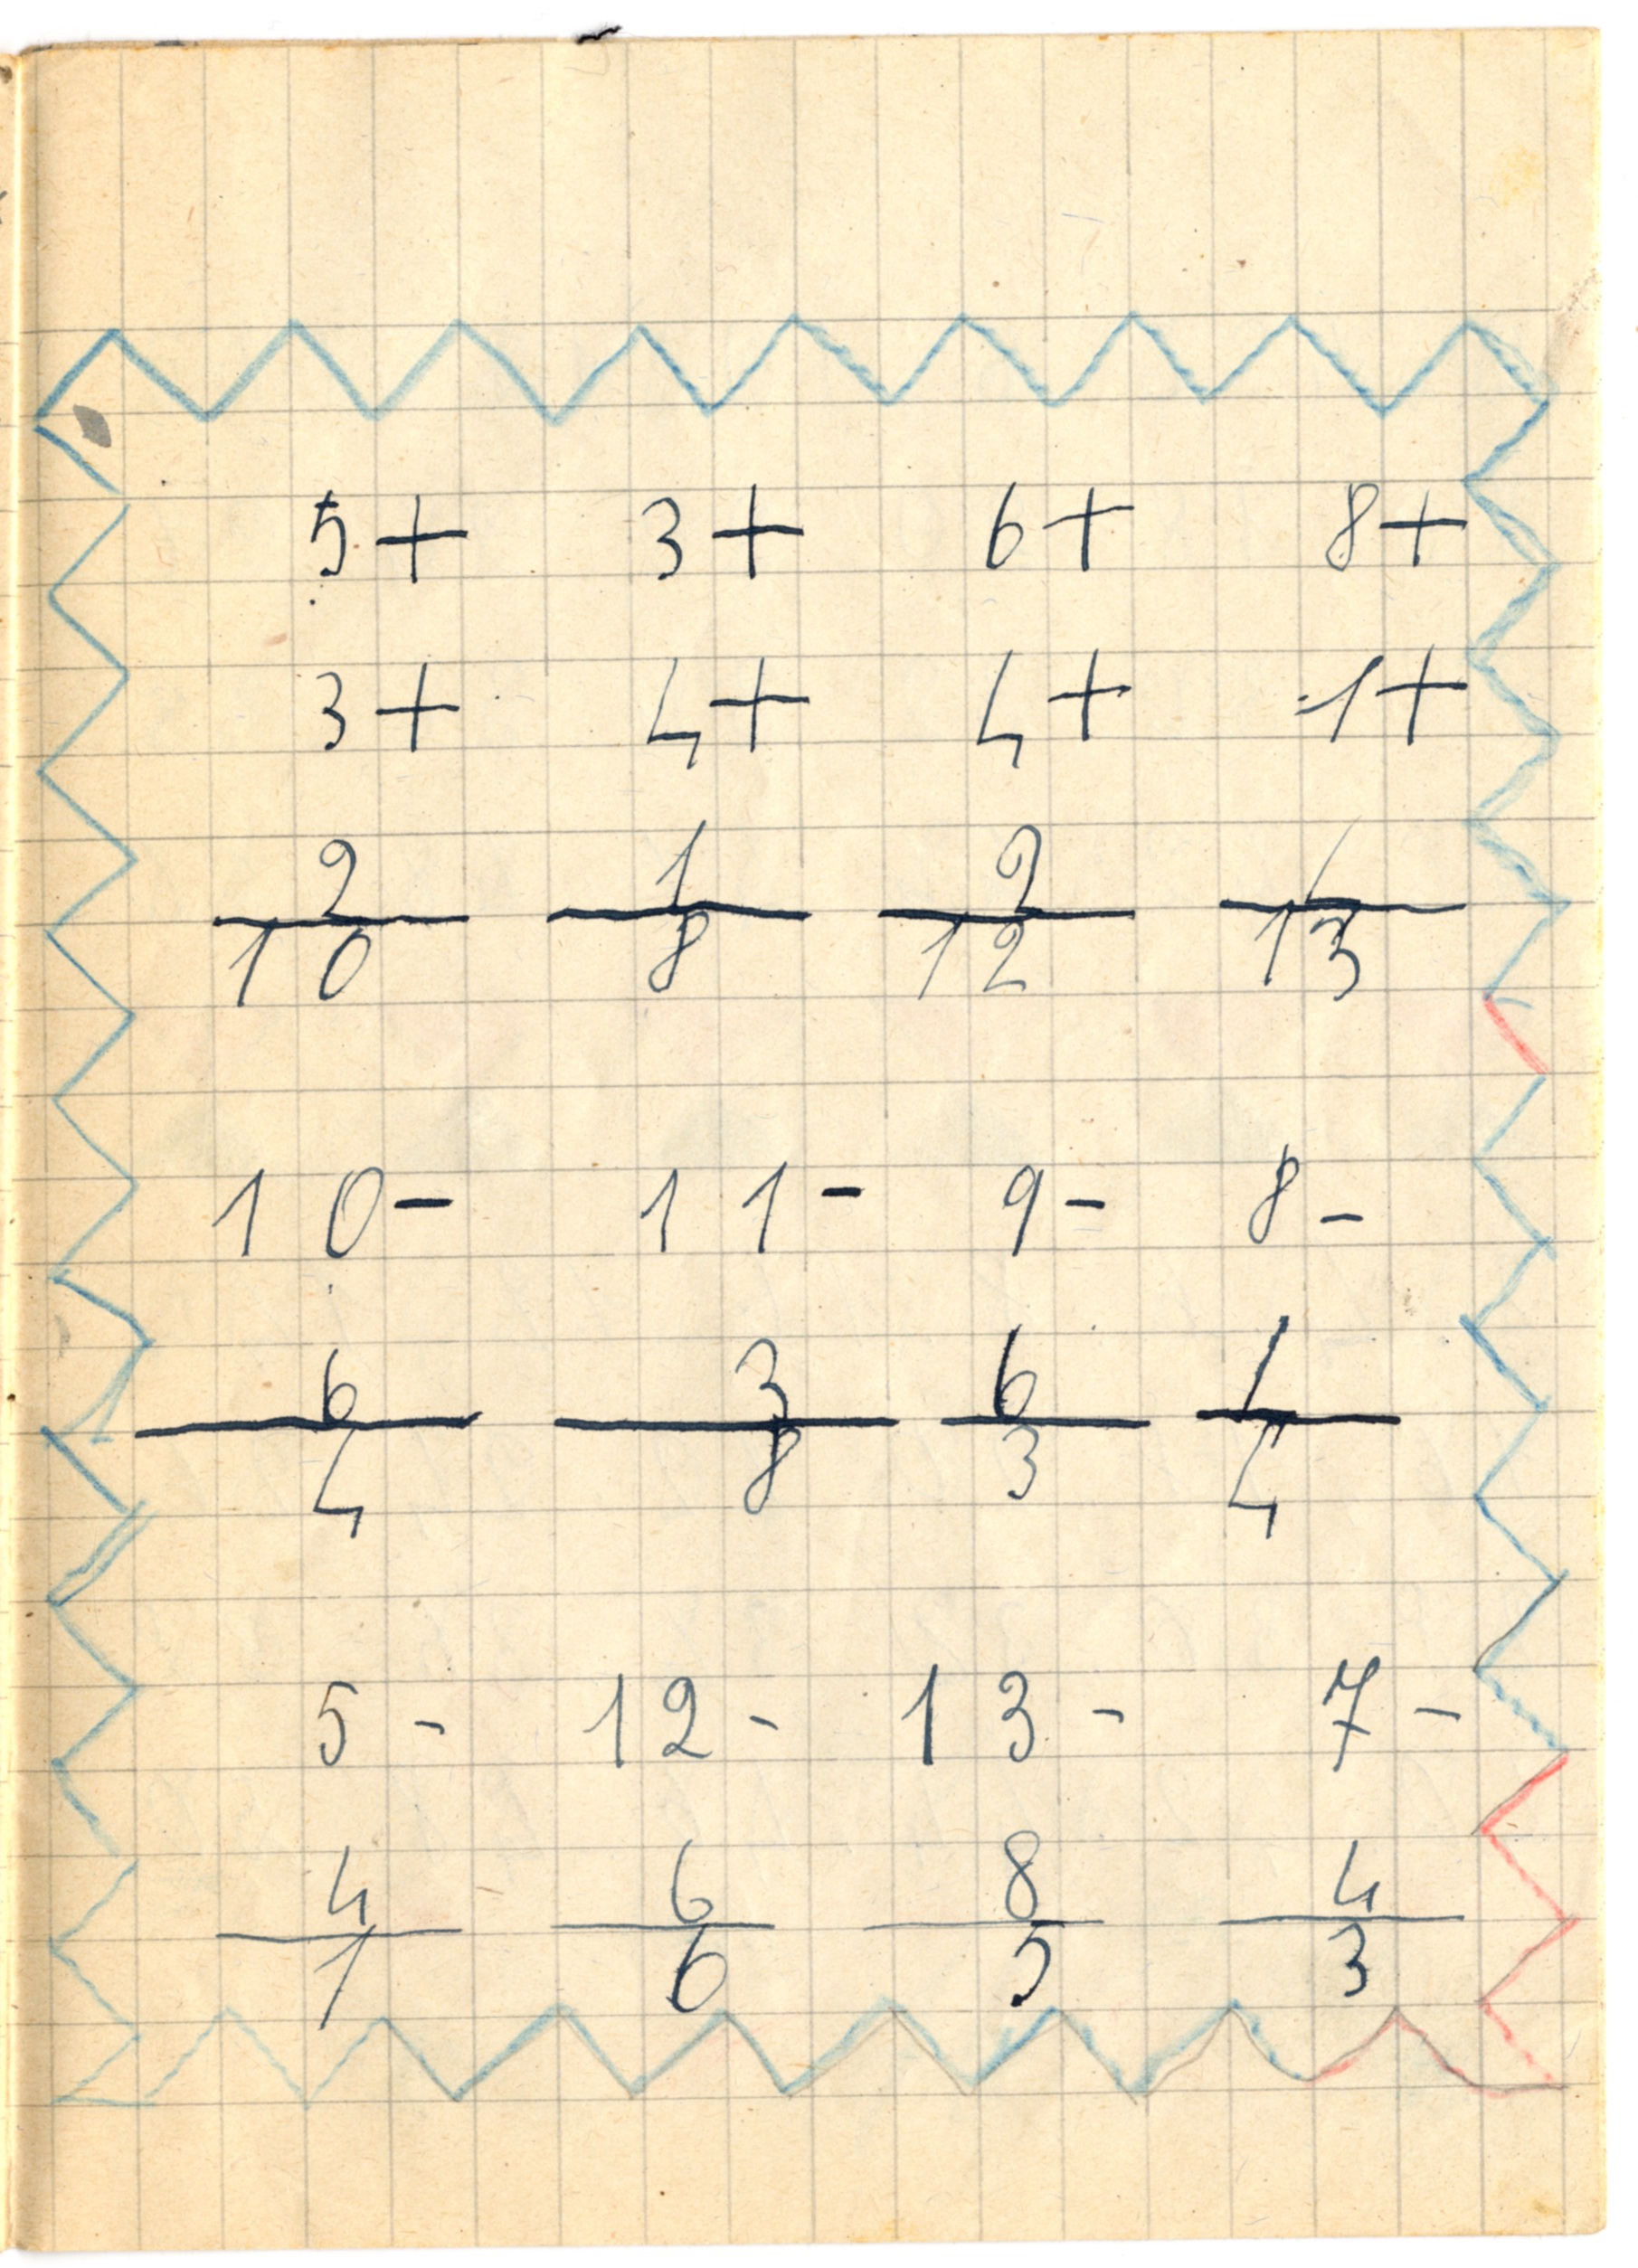 5+ 3+ 6+ 8+
3+ 4+ 4+ 1+
2 1 2 4
10 8 12 13
10- 11- 9- 8-
6 3 6 4
4 8 3 4
5- 12- 13- 7-
4 6 8 4
1 6 5 3